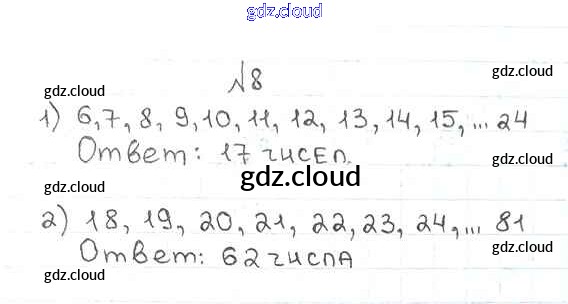 gdz.cloud
№8
gdz.cloud gdz.cloud
1) 6, 7, 8, 9, 10, 11, 12, 13, 14, 15, ... 24
Ответ: 17 чисел.
gdz.cloud gdz.cloud
gdz.cloud
2) 18, 19, 20, 21, 22, 23, 24, ... 81
Ответ: 62 числа
gdz.cloud gdz.cloud